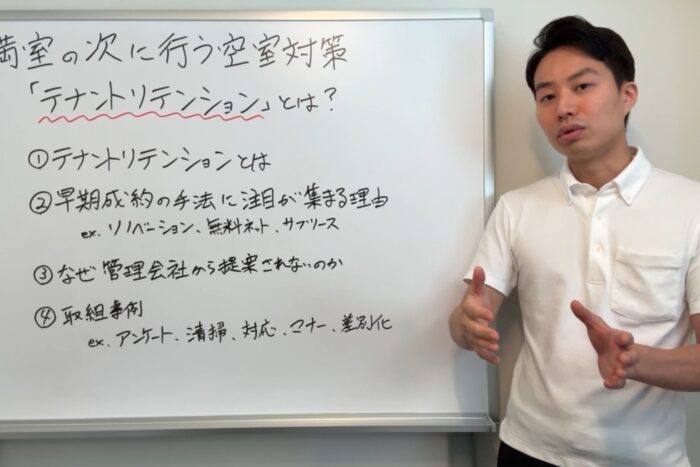 満室の次に行う空室対策
「テナントリテンション」とは?
①テナントリテンションとは
②早期成約の手法に注目が集まる理由
ex. リノベーション、無料ネット、サブリース
③なぜ管理会社から提案されないのか
④取組事例
ex. アンケート、清掃、対応、マナー、差別化